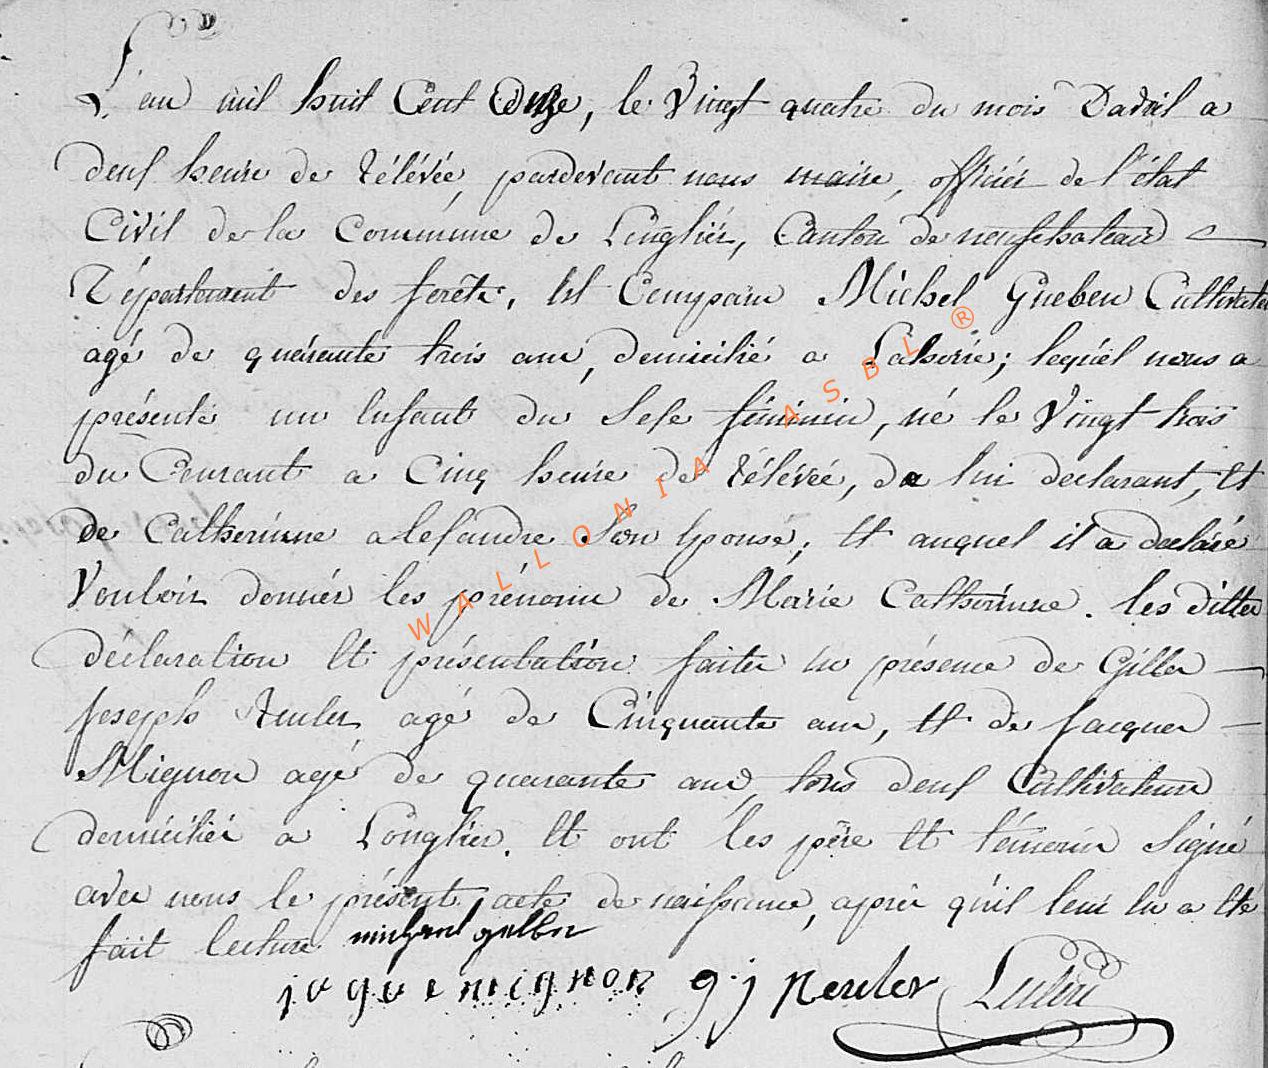 L'an mil huit Cent onze, le Vingt quatre du mois D'avril a
deux heure de rélévée, pardevant nous maire, officier de l'état
Civil de la Commune de Longlier, Canton de neufchateau
Département des forêts, Est Comparu Michel Gueben Cultivateur
agé de quarante trois ans, domicilié a Laherie; lequel nous a
présenté un Enfant du Sexe féminin, né le Vingt trois
du Courant a Cinq heure de rélévée, de lui déclarant, Et
de Catherinne alexandre Son Epouse; Et auquel il a declaré
Vouloir donnér les prénoms de Marie Catherinne. les dittes
déclaration Et présentation faites En présence de Gilles
Joseph agé de Cinquante ans, Et de Jacques
Mignon agé de quarante ans, tous deux Cultivateurs
domiciliés a Longlier. Et ont les père Et témoins Signé
avec nous le présent acte de naissance, après qu'il leur En a Eté
fait lecture
jaque mignon g.j
WALLONIA ASBL ®